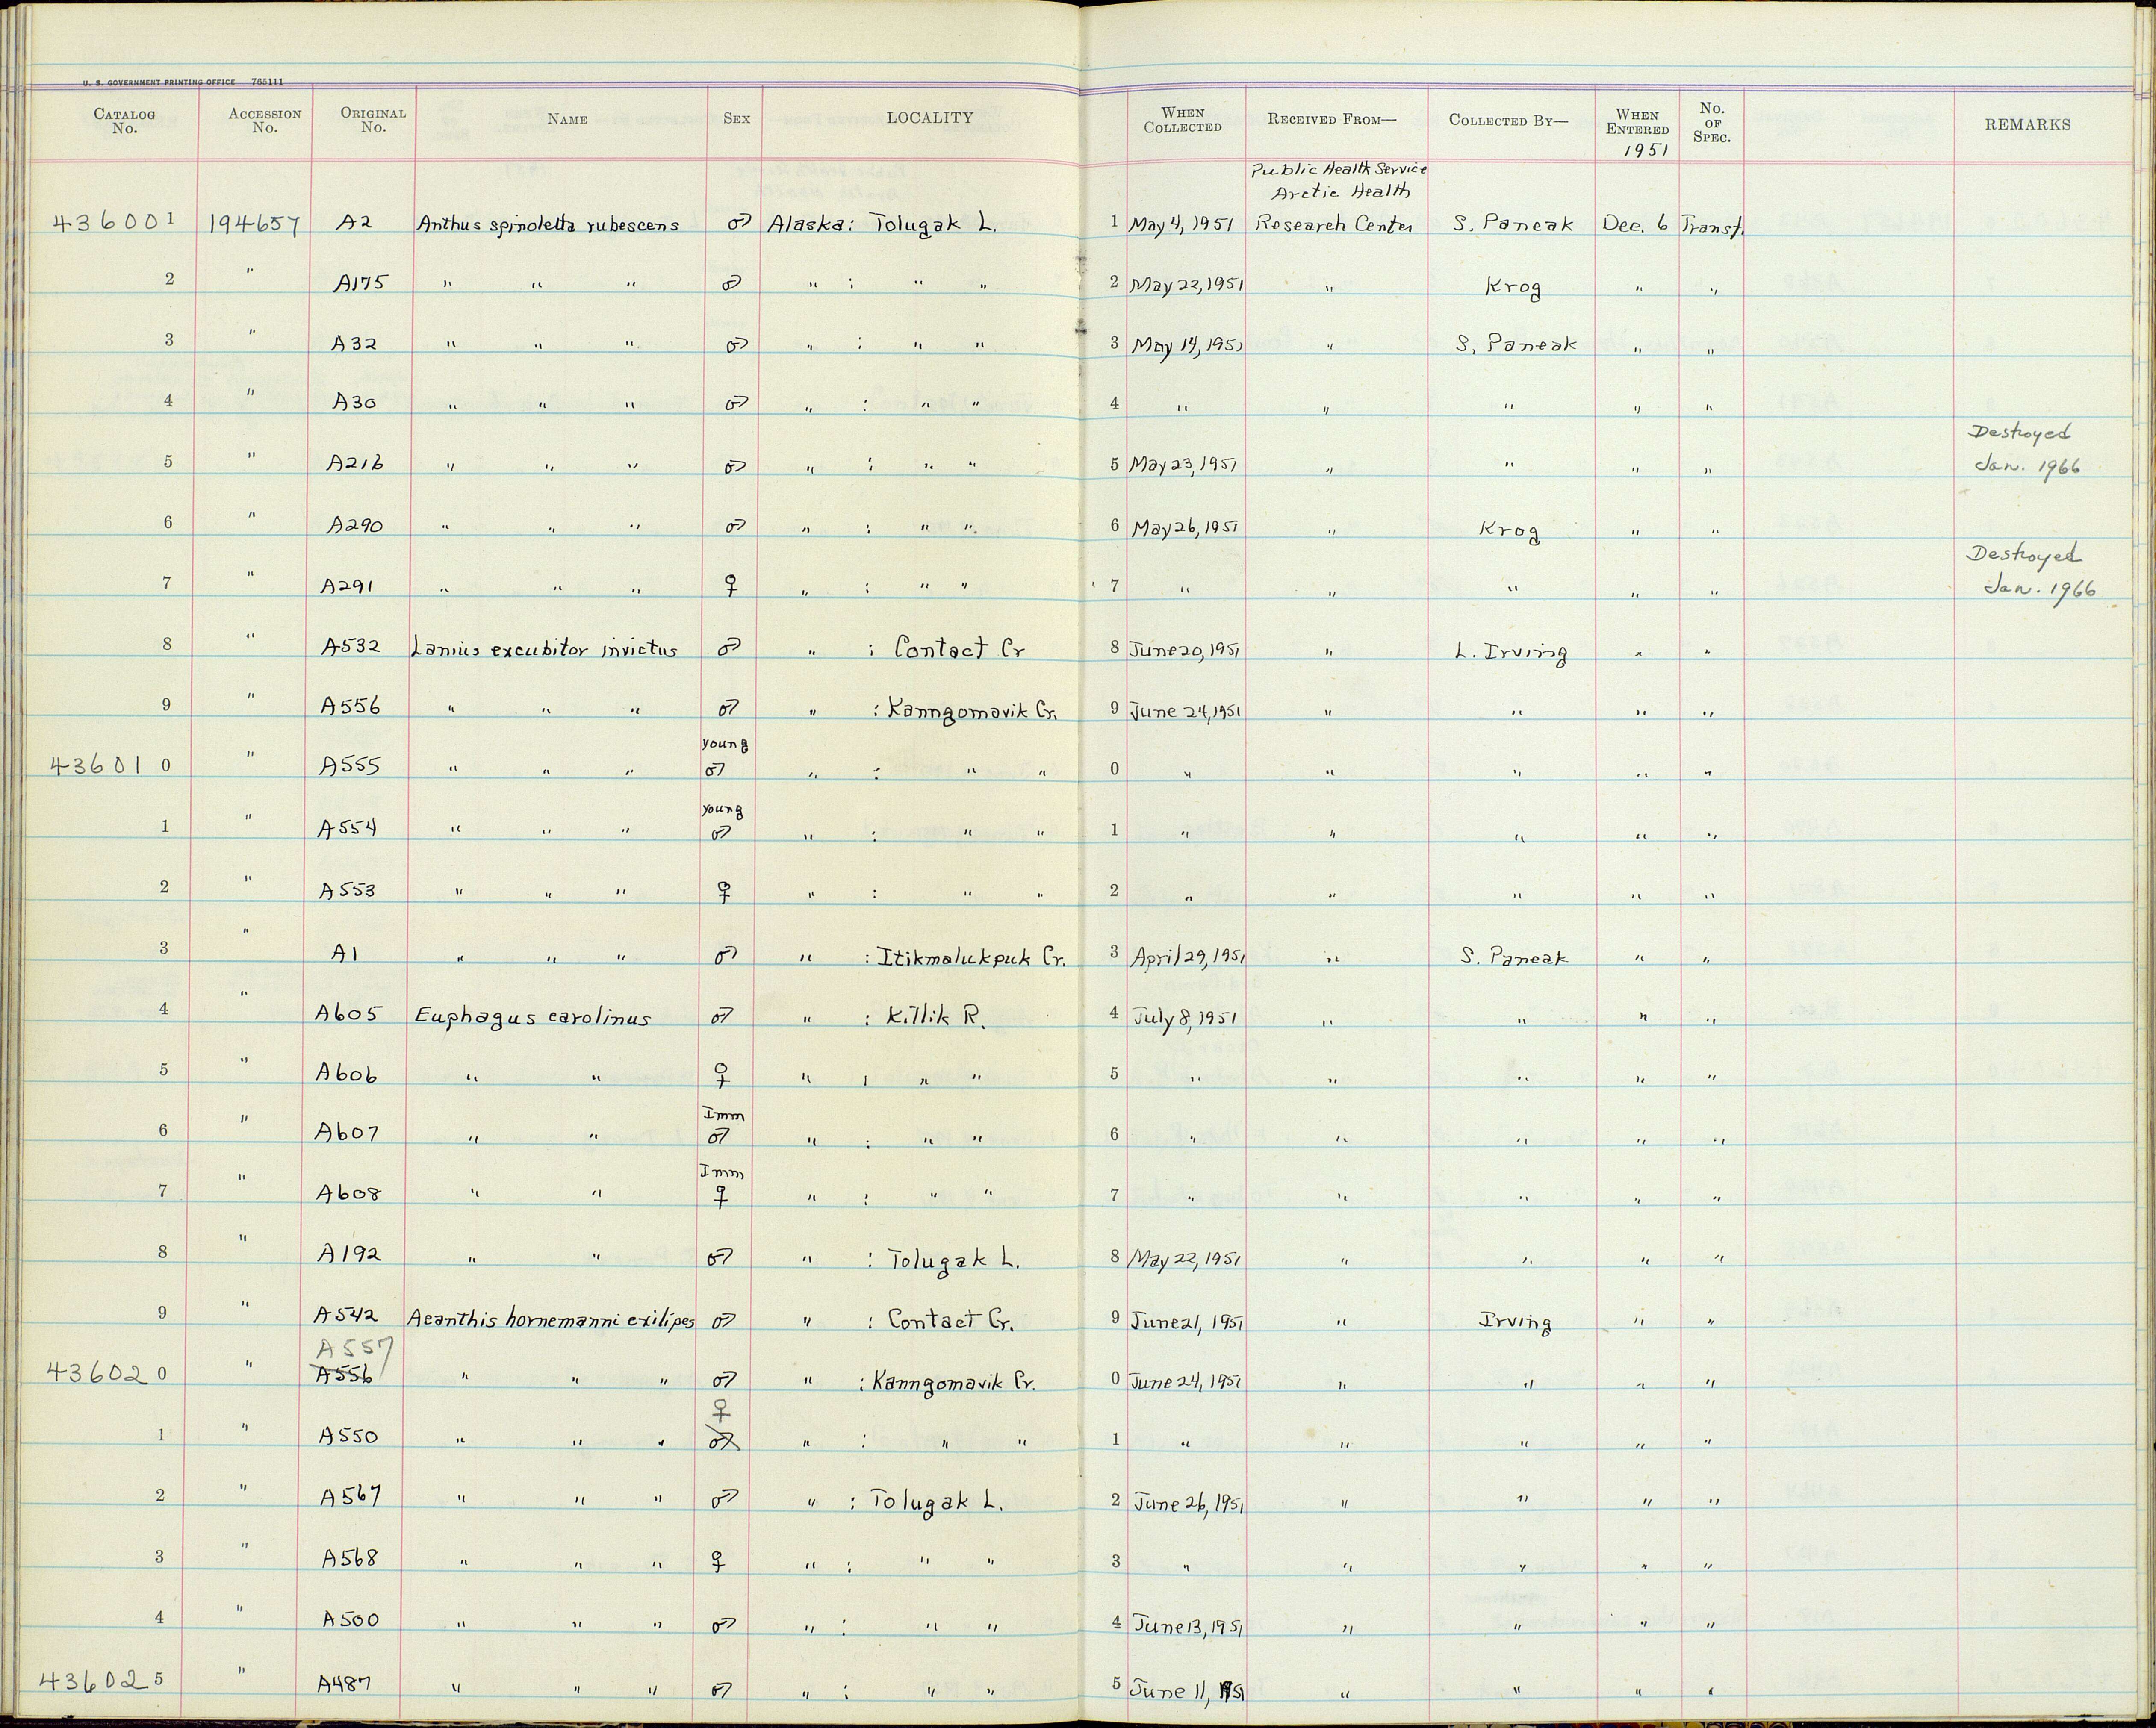 U. S. GOVERNMENT PRINTING OFFICE 765111
CATALOG No. ACCESSION No. ORIGINAL No. NAME SEX LOCALITY WHEN COLLECTED RECEIVED FROM— COLLECTED BY— WHEN ENTERED 1951 No. OF SPEC. REMARKS
Public Health Service
Arctic Health
436001 194657 A2 Anthus spinoletta rubescens ♂ Alaska: Tolugak L. 1 May 4, 1951 Research Center S. Paneak Dec. 6 Transf.
2 " A175 " " " ♂ " : " " 2 May 22, 1951 " Krog " "
3 " A32 " " " ♂ " : " " 3 May 14, 1951 " S. Paneak " "
4 " A30 " " " ♂ " : " " 4 " " " " "
Destroyed
5 " A216 " " " ♂ " : " " 5 May 23, 1951 " " " " Jan. 1966
6 " A290 " " " ♂ " : " " 6 May 26, 1951 " Krog " "
Destroyed
7 " A291 " " " ♀ " : " " 7 " " " " " Jan. 1966
8 " A532 Lanius excubitor invictus ♂ " : Contact Cr 8 June 20, 1951 " L. Irving " "
9 " A556 " " " ♂ " : Kanngomavik Cr. 9 June 24, 1951 " " " "
young
436010 " A555 " " " ♂ " : " " 0 " " " " "
young
1 " A554 " " " ♂ " : " " 1 " " " " "
2 " A553 " " " ♀ " : " " 2 " " " " "
3 " A1 " " " ♂ " : Itikmalukpuk Cr. 3 April 29, 1951 " S. Paneak " "
4 " A605 Euphagus carolinus ♂ " : Killik R. 4 July 8, 1951 " " " "
5 " A606 " " ♀ " : " " 5 " " " " "
Imm
6 " A607 " " ♂ " : " " 6 " " " " "
Imm
7 " A608 " " ♀ " : " " 7 " " " " "
8 " A192 " " ♂ " : Tolugak L. 8 May 22, 1951 " " " "
9 " A542 Acanthis hornemanni exilipes ♂ " : Contact Cr. 9 June 21, 1951 " Irving " "
A557
436020 " A556 " " " ♂ " : Kanngomavik Cr. 0 June 24, 1951 " " " "
♀
1 " A550 " " " ♂ " : " " 1 " " " " "
2 " A567 " " " ♂ " : Tolugak L. 2 June 26, 1951 " " " "
3 " A568 " " " ♀ " : " " 3 " " " " "
4 " A500 " " " ♂ " : " " 4 June 13, 1951 " " " "
436025 " A487 " " " ♂ " : " " 5 June 11, 1951 " " " "